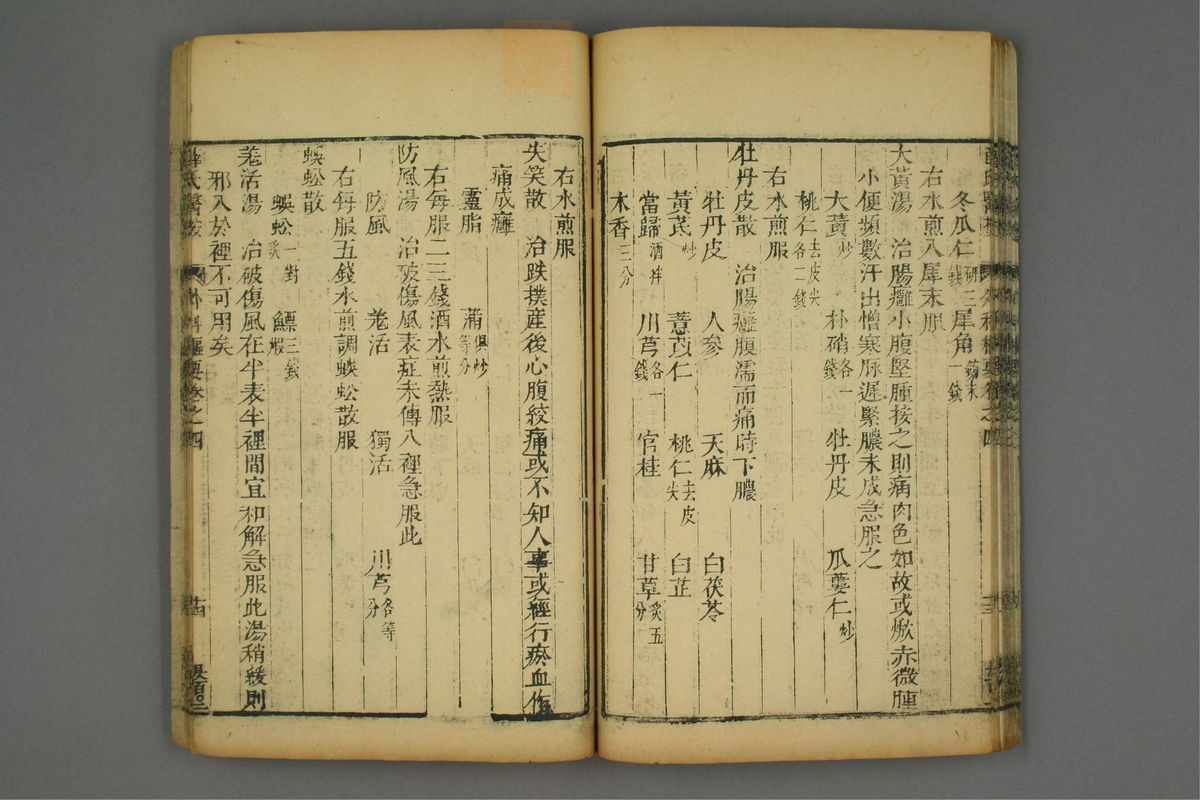 冬瓜仁研二錢 犀角鎊末一錢
右水煎入犀末服
大黃湯 治腸癰小腹堅腫按之則痛肉色如故或焮赤微腫
小便頻數汗出憎寒脉遲緊膿未成急服之
大黃炒 朴硝各一錢 牡丹皮 瓜蔞仁炒
桃仁去皮尖各二錢
右水煎服
牡丹皮散 治腸癰腹濡而痛時下膿
牡丹皮 人參 天麻 白茯苓
黃芪炒 薏苡仁 桃仁去皮尖 白芷
當歸酒拌 川芎各一錢 官桂 甘草炙五分
木香三分
右水煎服
失笑散 治跌撲產後心腹絞痛或不知人事或經行瘀血作
痛成癰
靈脂 蒲俱炒等分
右每服二三錢酒水煎熱服
防風湯 治破傷風表症未傳入裡急服此
防風 羌活 獨活 川芎各等分
右每服五錢水煎調蜈蚣散服
蜈蚣散
蜈蚣一對炙 鰾三錢煆
羌活湯 治破傷風在半表半裡間宜和解急服此湯稍緩則
邪入於裡不可用矣
薛氏醫按 外科樞要卷之四 十四